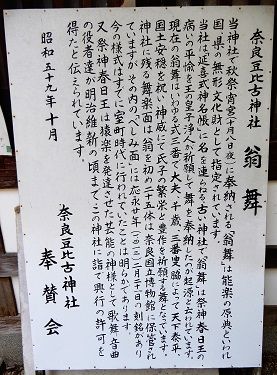 奈良豆比古神社 翁舞
当神社で秋祭宵宮(十月八日夜)に奉納される「翁舞」は能楽の原典といわれ
国・県の無形文化財として指定されています。
当社は「延喜式神名帳」に名を連らねる古い神社で「翁舞」は祭神春日王の
病の平癒を王の皇子浄人が祈願して舞を奉納したのが起源と云われています。
現在の翁舞はいわゆる式三番で大夫、千歳、三番叟脇によって天下泰平、
国土安穏を祝い神威にて氏子の繁栄と豊作を祈願する舞となっています。
神社に残る舞楽面は翁を初め二十五体は奈良国立博物館に保管され
ていますが、その内の「べしみ」面には「応永廿年(一四一三)二月廿一日」の刻銘があり
今の様式はすでに室町時代に行われていたことは明らかであります。
又祭神春日王は猿楽を発達させた芸能の神様として歌舞音曲
の役者達が明治維新の頃までこの神社に詣で興行の許可を
得たと伝えられています。
昭和五十九年十月
奈良豆比古神社
奉賛会